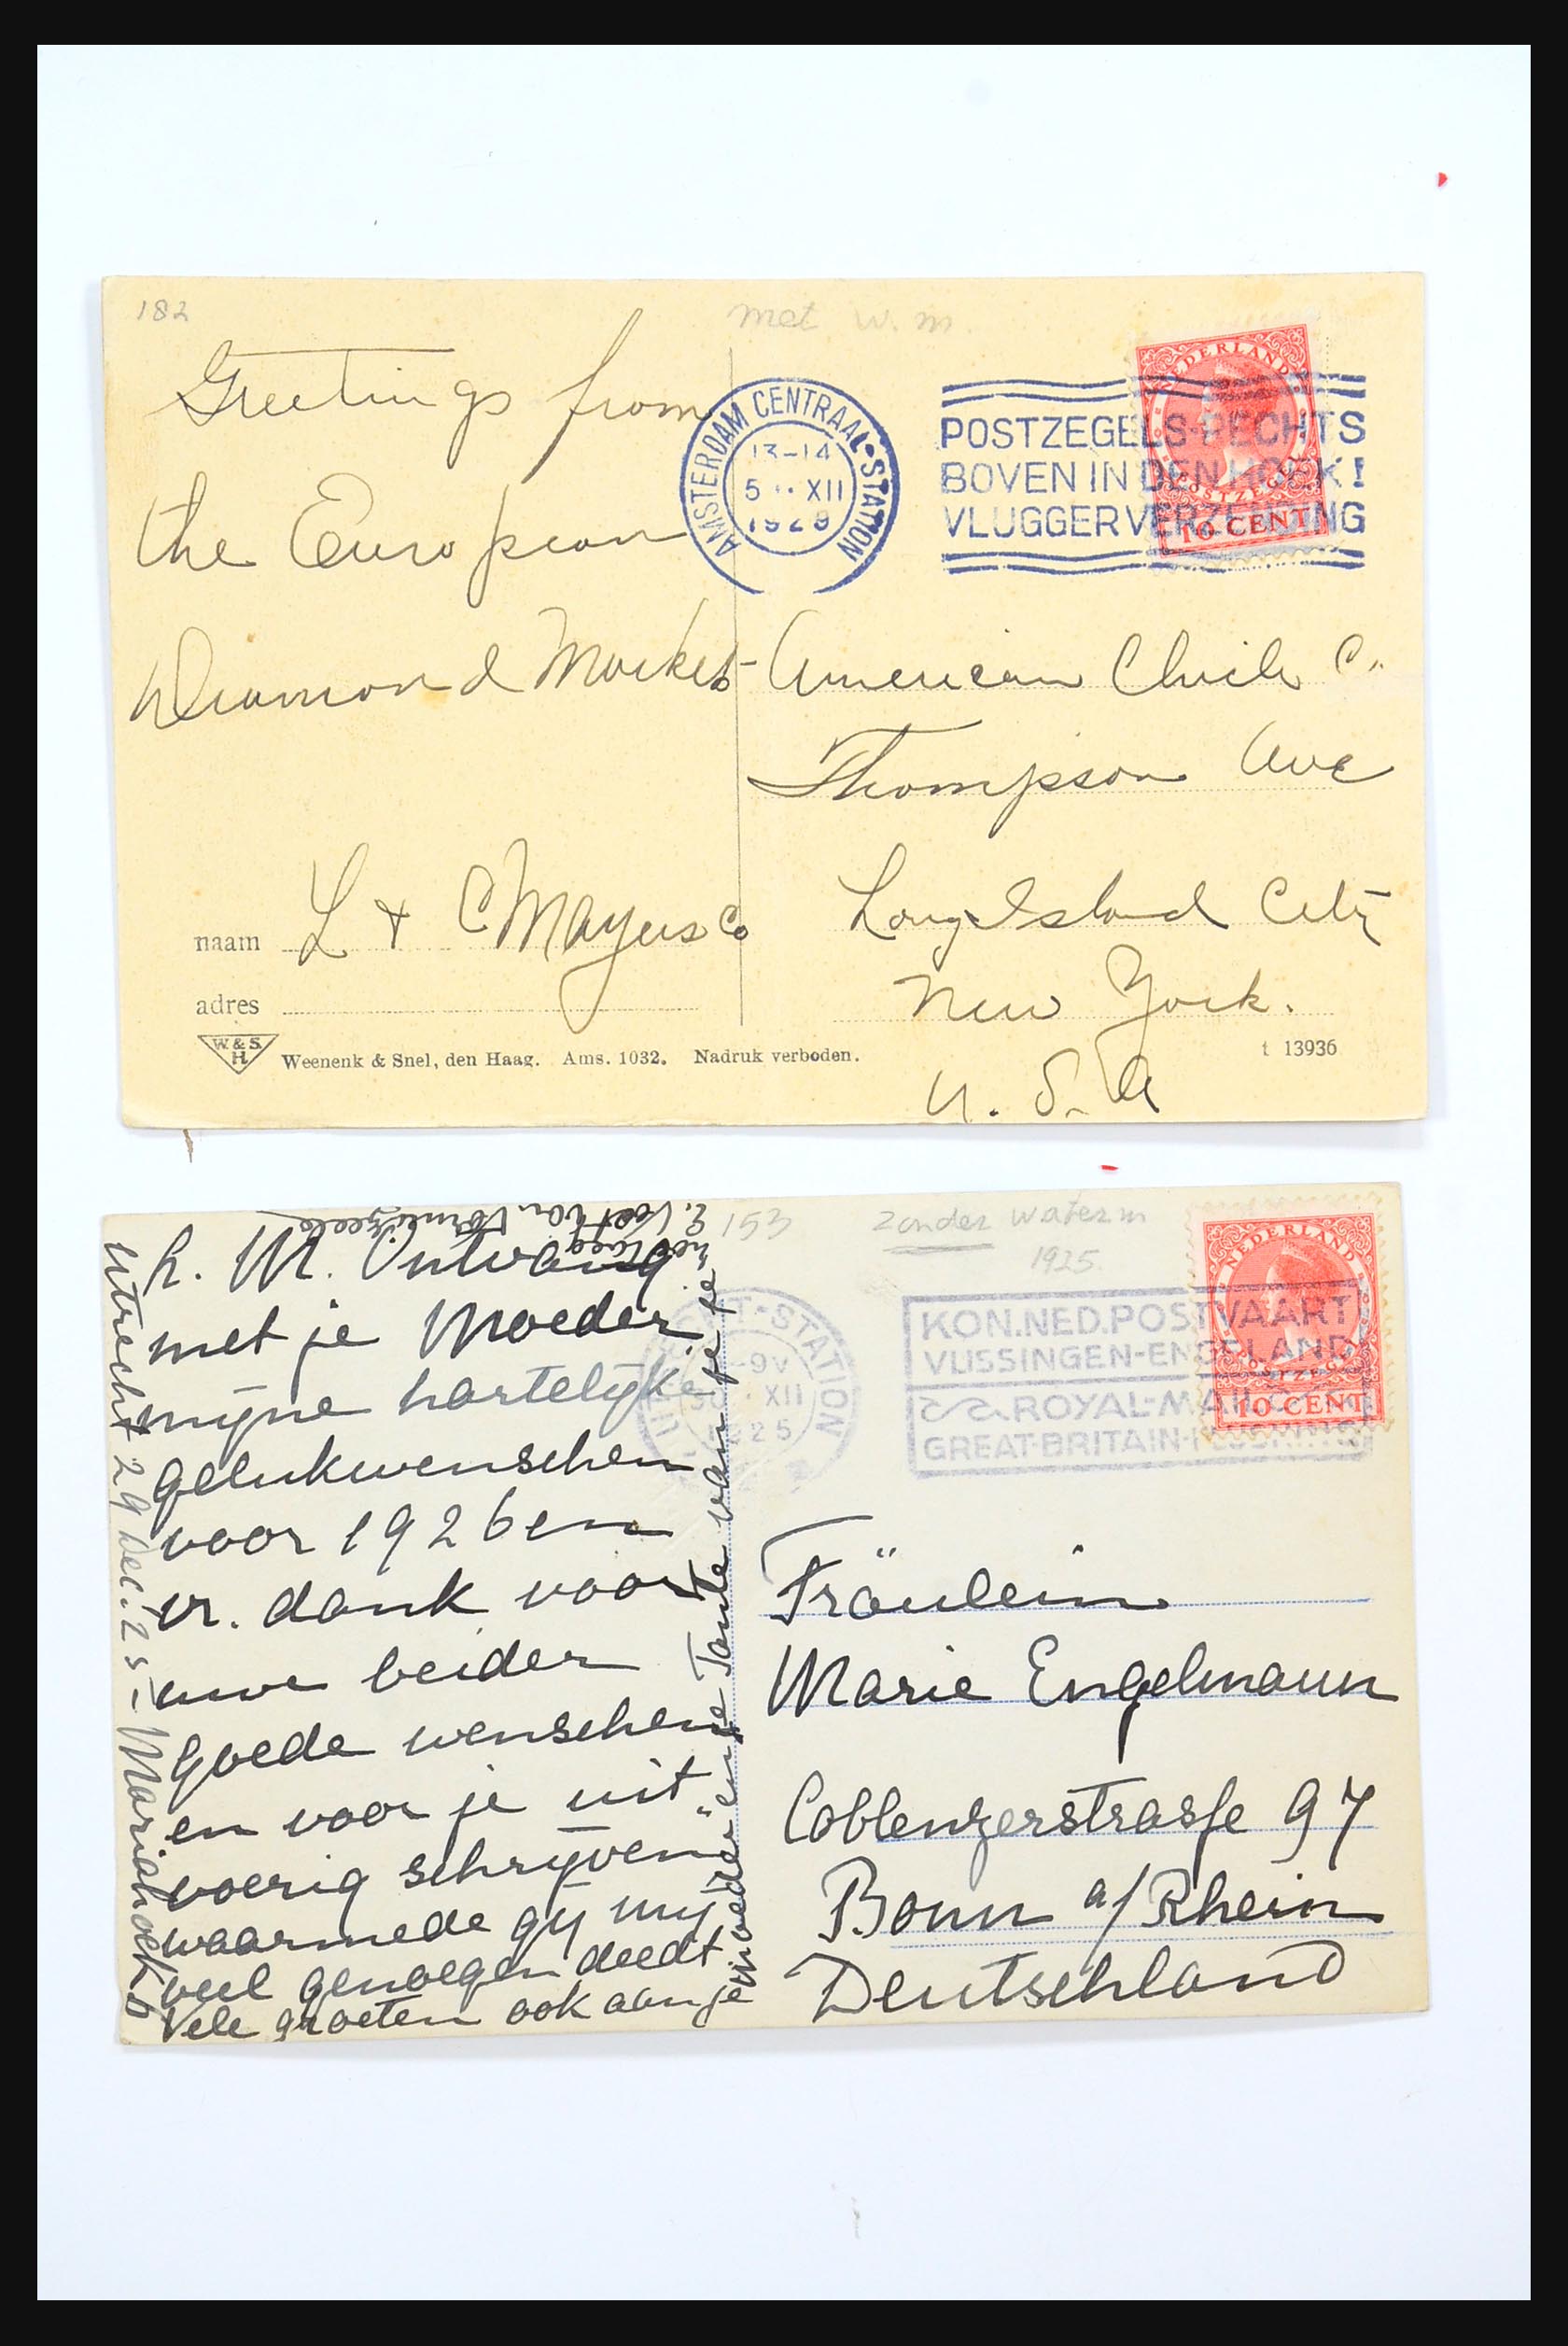 182
met w.m.
Greetings from
the European
Diamond Market
L + C Mayers Co
naam
adres
W. & S.
H.
Weenenk & Snel, den Haag. Ams. 1032. Nadruk verboden.
AMSTERDAM CENTRAAL-STATION
13-14
5 XII
1928
POSTZEGELS RECHTS
BOVEN IN DEN HOEK!
VLUGGER VERZENDING
NEDERLAND
POSTZEGEL
10 CENT
American Chicle Co
Thompson Ave
Long Island City
New York.
U. S. A
t 13936
153
zonder waterm
1925.
h. M. Ontvang
met je Moeder
mijne hartelijke
gelukwenschen
voor 1926 en
vr. dank voor
uwe beider
goede wenschen
en voor je uit
voerig schrijven
waarmede gij mij
veel genoegen deedt
Vele groeten ook aan je
moeder en je Tante van je je
Utrecht 29 Dec. 25 - Mariahoek 6
STATION
-9V
XII
1925
KON. NED. POSTVAART
VLISSINGEN-ENGELAND
ROYAL-MAIL
GREAT-BRITAIN-
NEDERLAND
10 CENT
Fräulein
Marie Engelmann
Coblenzerstrasse 97
Bonn a/Rhein
Deutschland